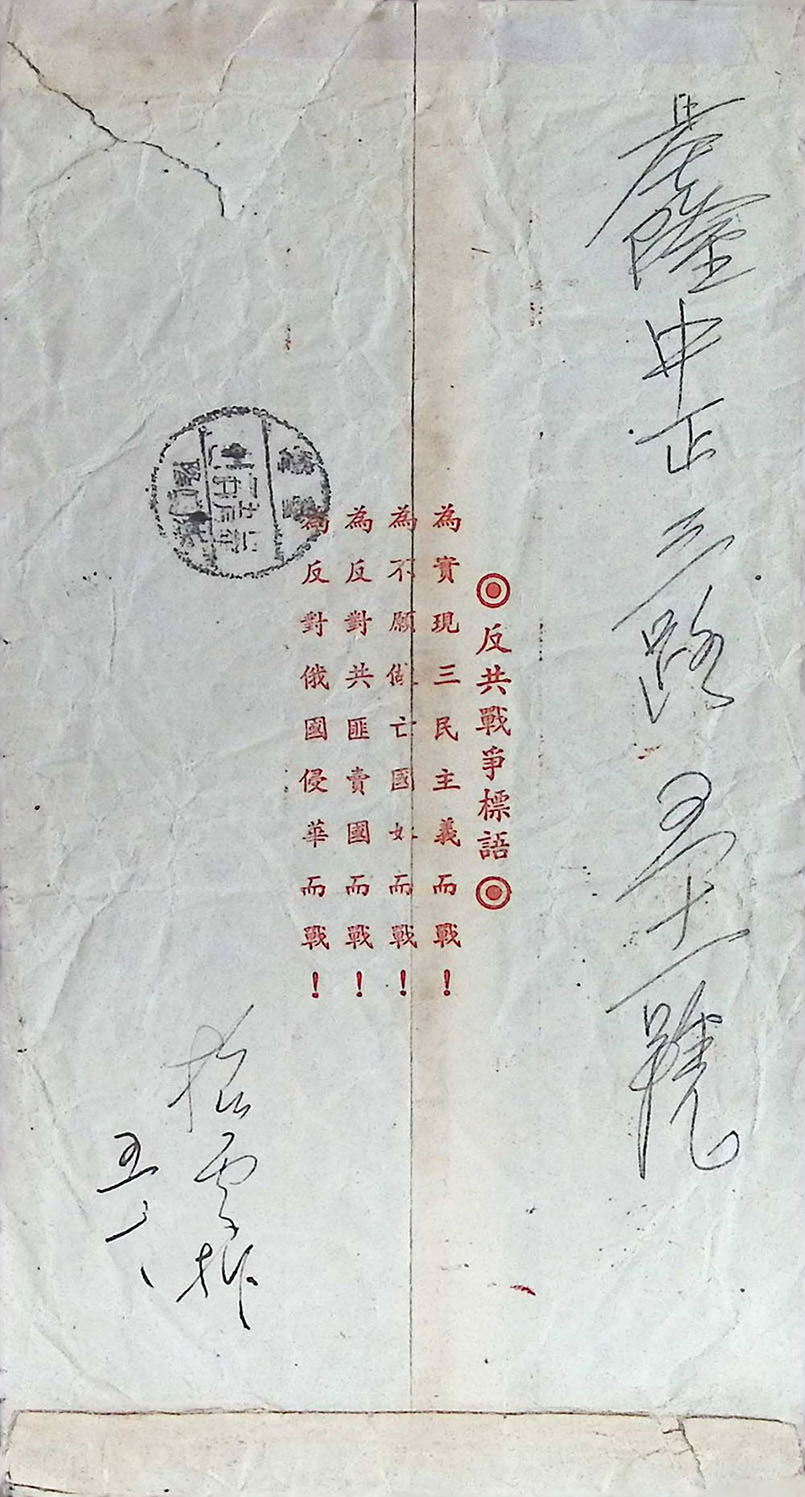 基隆中正三路五十一號
◎反共戰爭標語◎
為實現三民主義而戰!
為不願做亡國奴而戰!
為反對共匪賣國而戰!
為反對俄國侵華而戰!